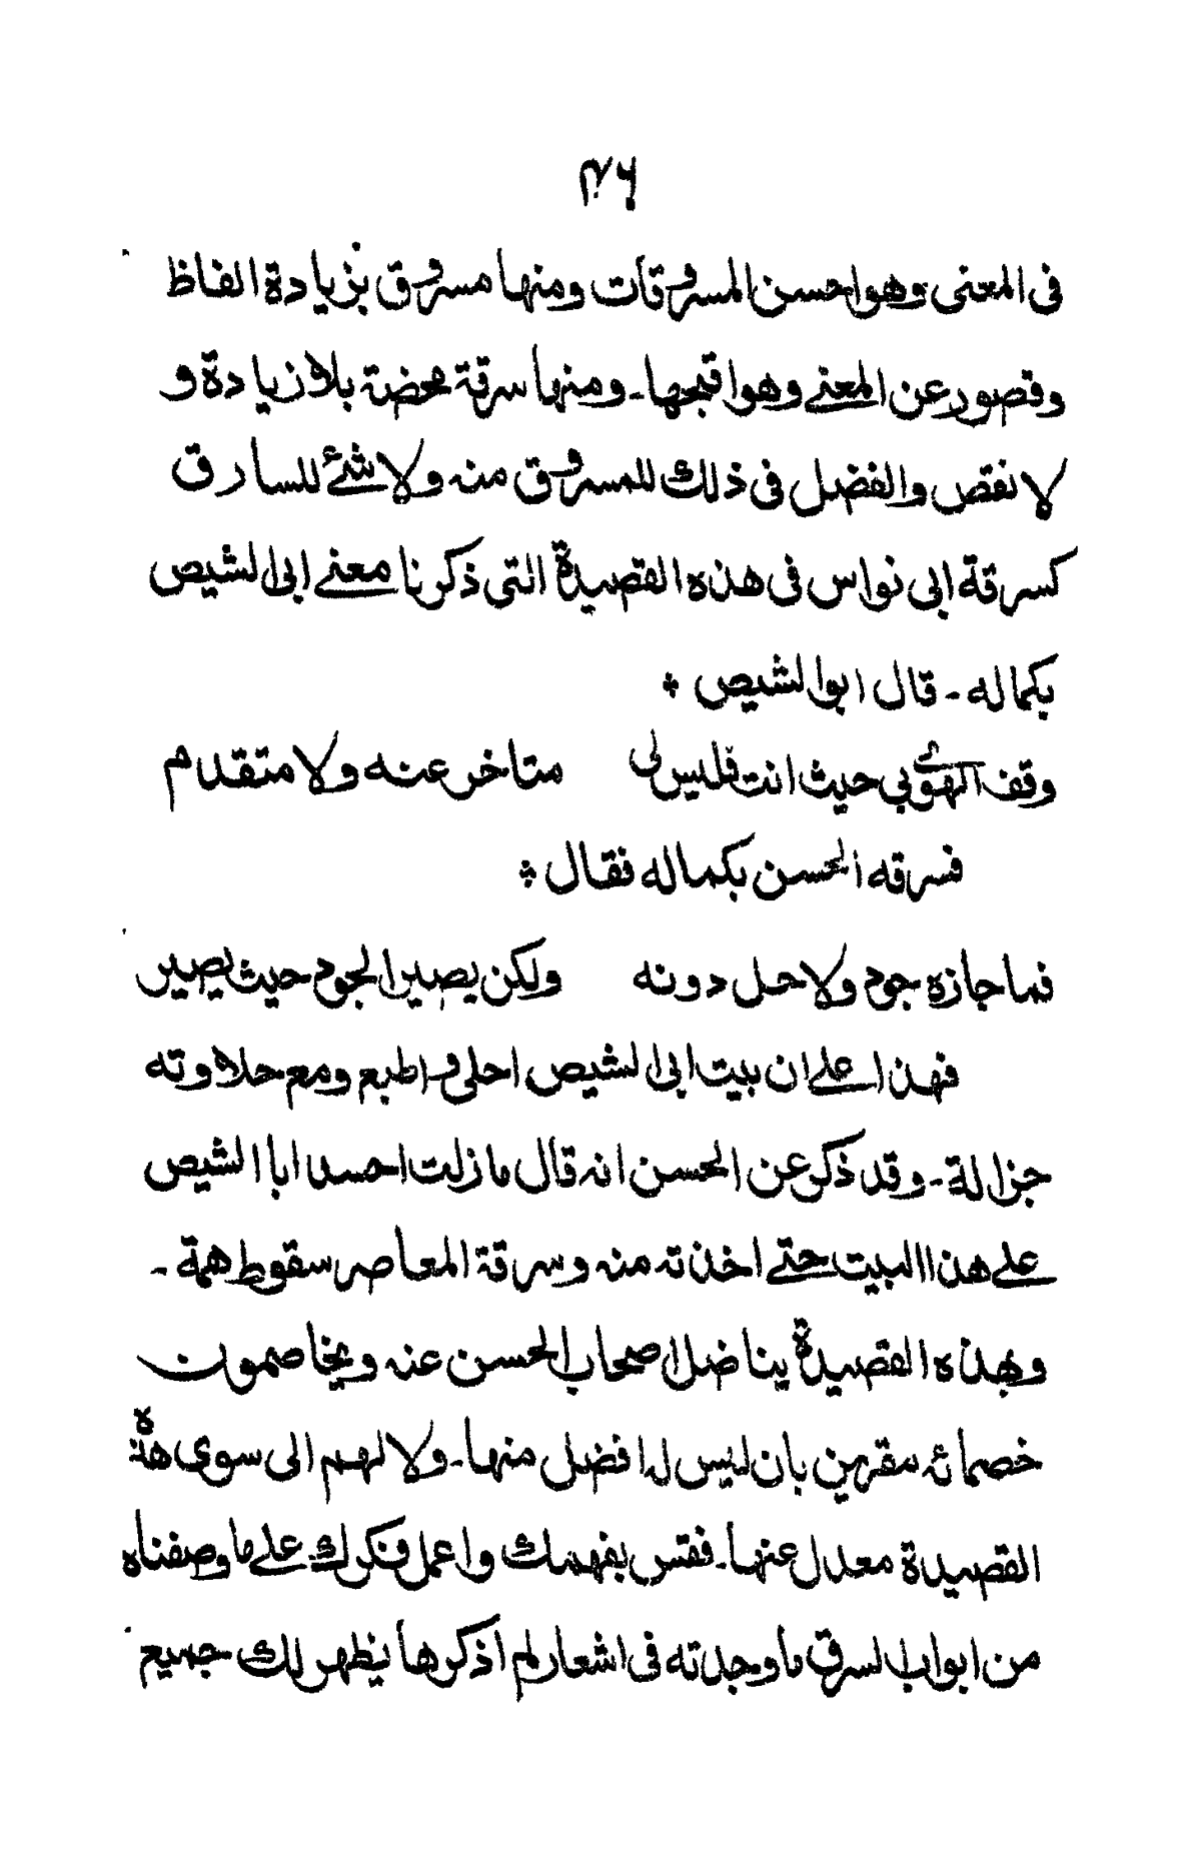 ٣٦
فى المعنى وهو احسن المسروقات ومنها مسروق بزيادة الفاظ
وقصور عن المعنى وهو اقبحها - ومنها سرقة محضة بلا زيادة و
لا نقص والفضل فى ذلك للمسروق منه ولا شئ للسارق
كسرقة ابى نواس فى هذه القصيدة التى ذكرنا معنى ابى الشيص
بكماله - قال ابو الشيص *
وقف الهوى بى حيث انت فليس لى متاخر عنه ولا متقدم
فسرقه الحسن بكماله فقال *
فما جازه جود ولا حل دونه ولكن يصير الجود حيث يصير
فهذا على ان بيت ابى الشيص احلى فى الطبع ومع حلاوته
جزالة - وقد ذكر عن الحسن انه قال ما زلت احسد ابا الشيص
على هذا البيت حتى اخذته منه وسرقة المعاصر سقوط همة -
وبهذه القصيدة يناضل اصحاب الحسن عنه ويخاصمون
خصمائه مقرين بان ليس له افضل منها - ولا لهم الى سوى هذه
القصيدة معدل عنها - فقس بفهمك واعمل فكرك على ما وصفناه
من ابواب السرق ما وجدته فى اشعار لم اذكرها يظهر لك جميع